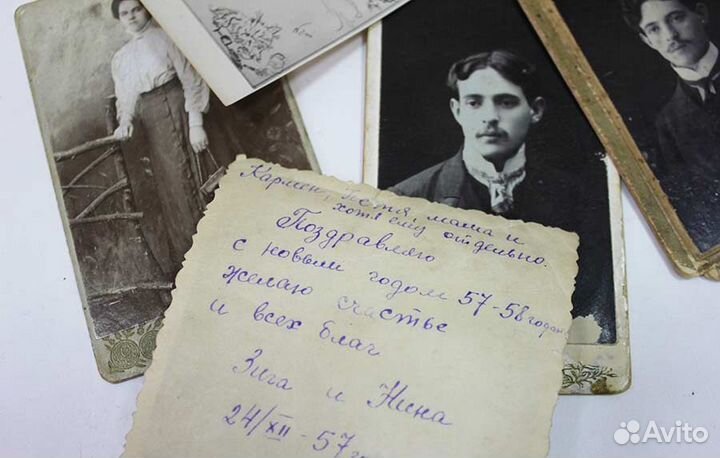 Кармен, Петя, мама и
хотя ему отдельно.
Поздравляю
с новым годом 57-58 годом
желаю счастье
и всех благ
Зига и Нина
24/XII - 57 г
Avito